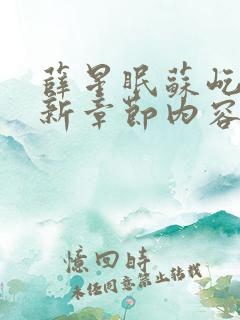 薛星眠蘇屹
新章節內容
憶回時
未经同意禁止转载